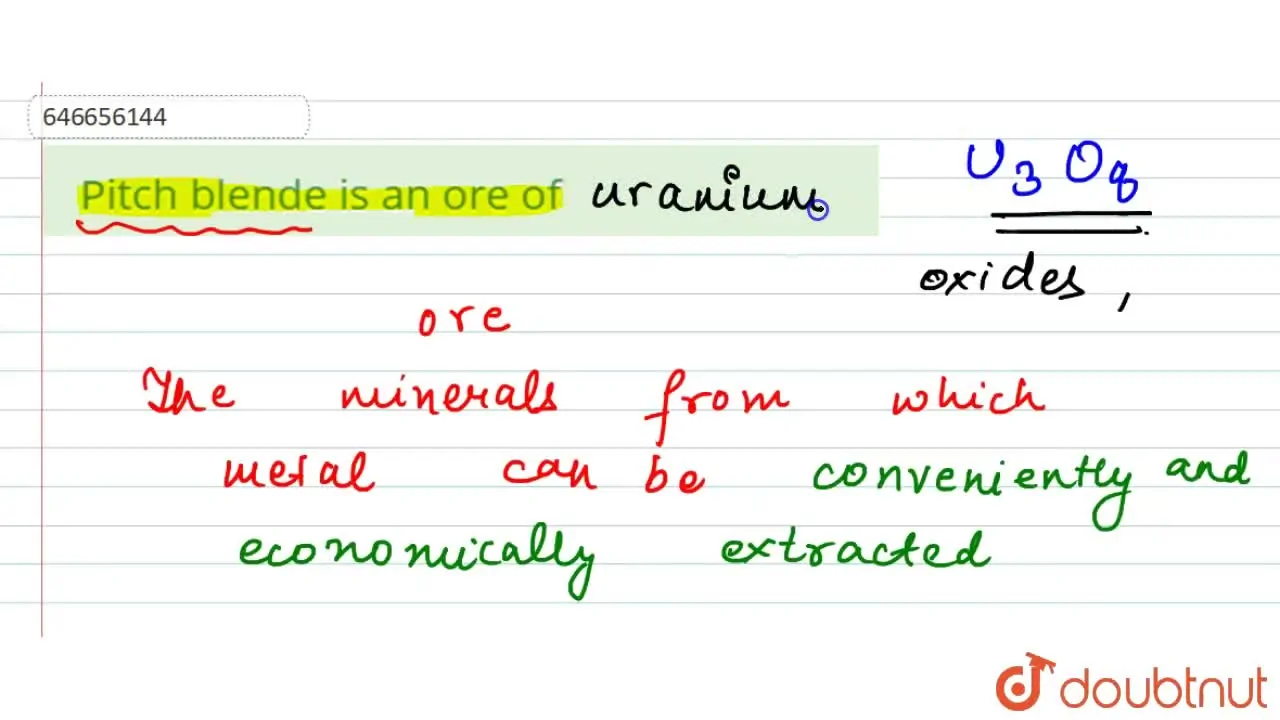 646656144
Pitch blende is an ore of uranium
U3 O8
oxides ,
ore
The minerals from which
metal can be conveniently and
economically extracted
doubtnut